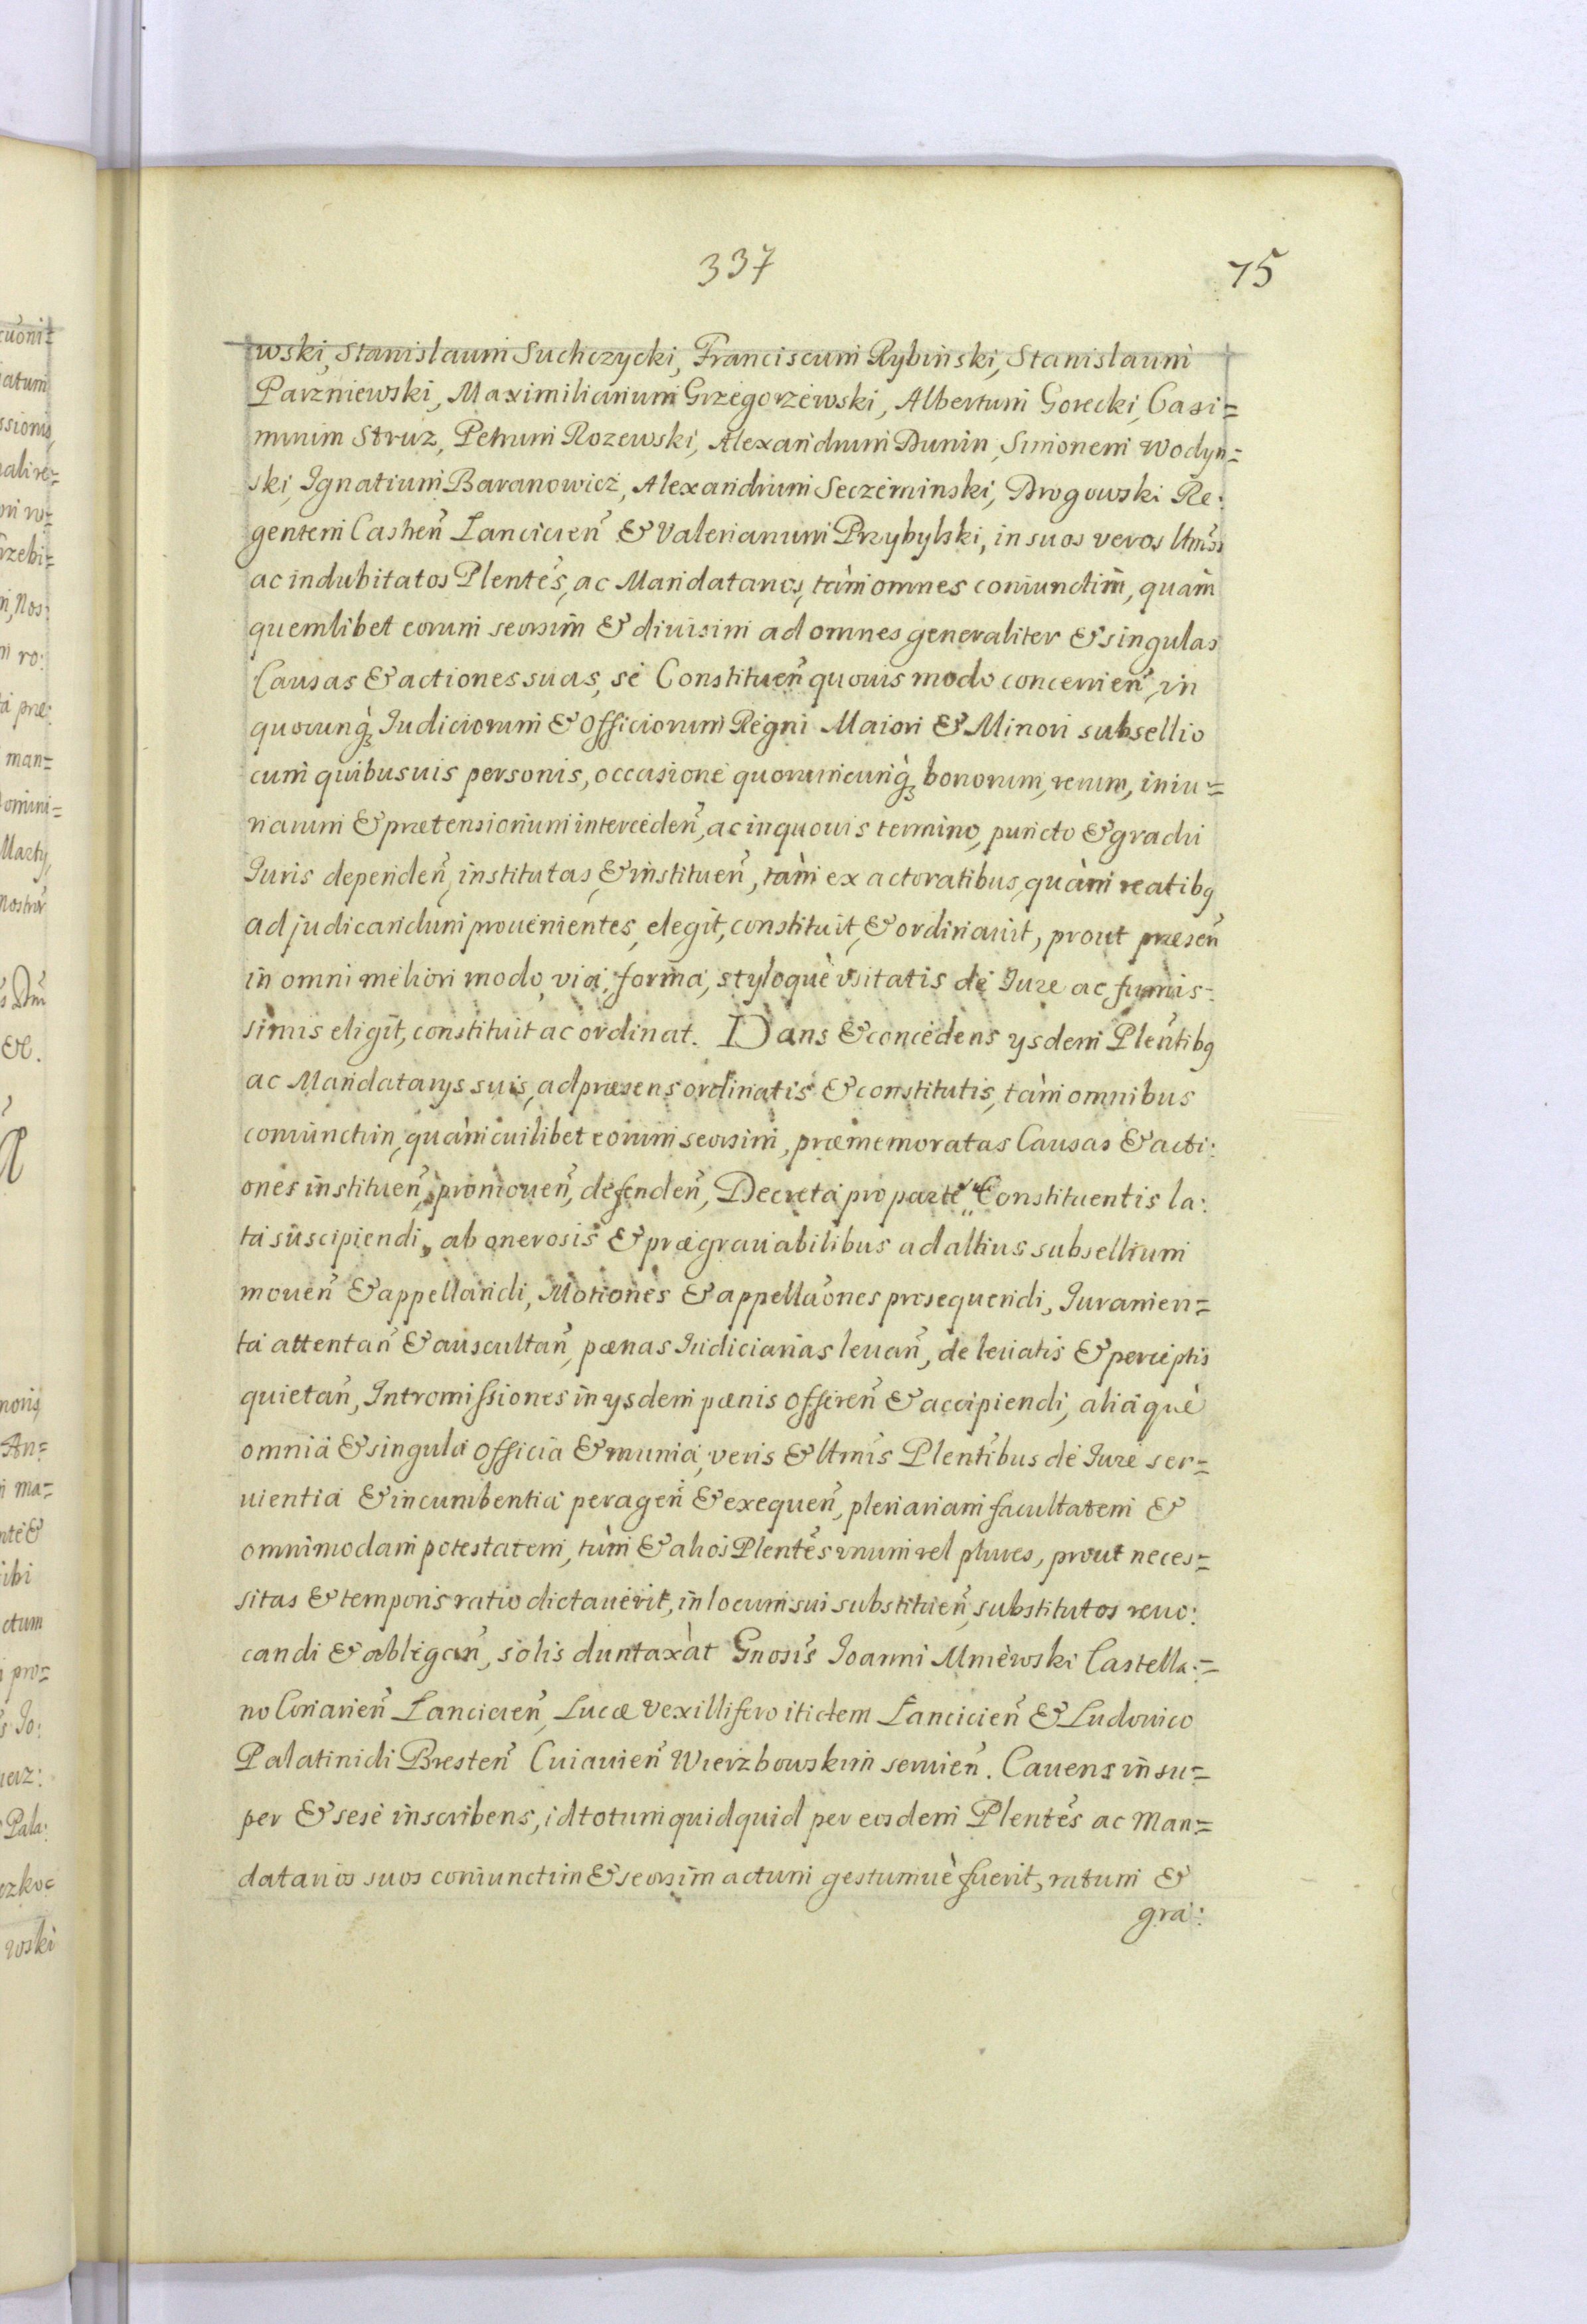 337
75
wski, Stanislaum Suchczycki, Franciscum Rybinski, Stanislaum
Parzniewski, Maximilianum Grzegorzewski, Albertum Gorecki, Casi=
mirum Struz, Petrum Rozewski, Alexandrum Dunin, Simonem Wodyn=
ski, Ignatium Baranowicz, Alexandrum Seczeminski, Drogowski Re:
gentem Castreñ Lancicieñ & Valerianum Przybylski, in suos veros ltmõs
ac indubitatos Plentes, ac Mandatarios, tàm omnes coniunctim, quàm
quemlibet eorum seorsim & diuisim ad omnes generaliter & singulas
Causas & actiones suas, se Constitueñ quouis modo concernieñ, in
quorunq́; Iudiciorum & Officiorum Regni Maiori & Minori subsellio
cum quibusuis personis, occasione quorumcunq́; bonorum, rerum, iniu=
riarum & prætensionum interceden̄, ac in quouis termino, puncto & gradu
Iuris dependeñ, institutas, & institueñ, tàm ex actoratibus, quàm reatibq
ad judicandum prouenientes, elegit, constituit, & ordinauit, prout præseñ
in omni meliori modo, via, forma, styloquè usitatis de Iure ac firmis-
simis eligit, constituit ac ordinat. Dans & concedens ysdem Plentibq
ac Mandatarys suis, ad præsens ordinatis & constitutis, tàm omnibus
coniunctim, quàm cuilibet eorum seorsim, præmemoratas Causas & acti:
ones institueñ, promoueñ, defendeñ, Decreta pro parte Constituentis la:
ta suscipiendi, ab onerosis & prægrauabilibus ad altius subsellium
moueñ & appellandi, Motiones & appellãones prosequendi, Iuramen=
ta attentañ & auscultañ, pœnas Iudiciarias leuañ, de leuatis & perceptis
quietañ, Intromissiones in ysdem pœnis offereñ & accipiendi, aliaquè
omnia & singula officia & munia, veris & ltmis Plentibus de Iure ser=
uientia & incumbentia perageñ & exequeñ, plenariam facultatem &
omnimodam potestatem, tùm & alios Plentes unum vel plures, prout neces=
sitas & temporis ratio dictauerit, in locum sui substitueñ, substitutos reuo:
candi & ablegañ, solis duntaxàt Gnosis Ioanni Mniewski Castella:=
no Conarieñ Lancicieñ, Lucæ Vexillifero itidem Lancicieñ & Ludouico
Palatinidi Bresteñ Cuiauieñ Wierzbowskim seruieñ. Cauens insu=
per & sese inscribens, id totum quidquid per eosdem Plentes ac Man:=
datarios suos coniunctim & seorsim actum gestumuè fuerit, ratum &
gra: